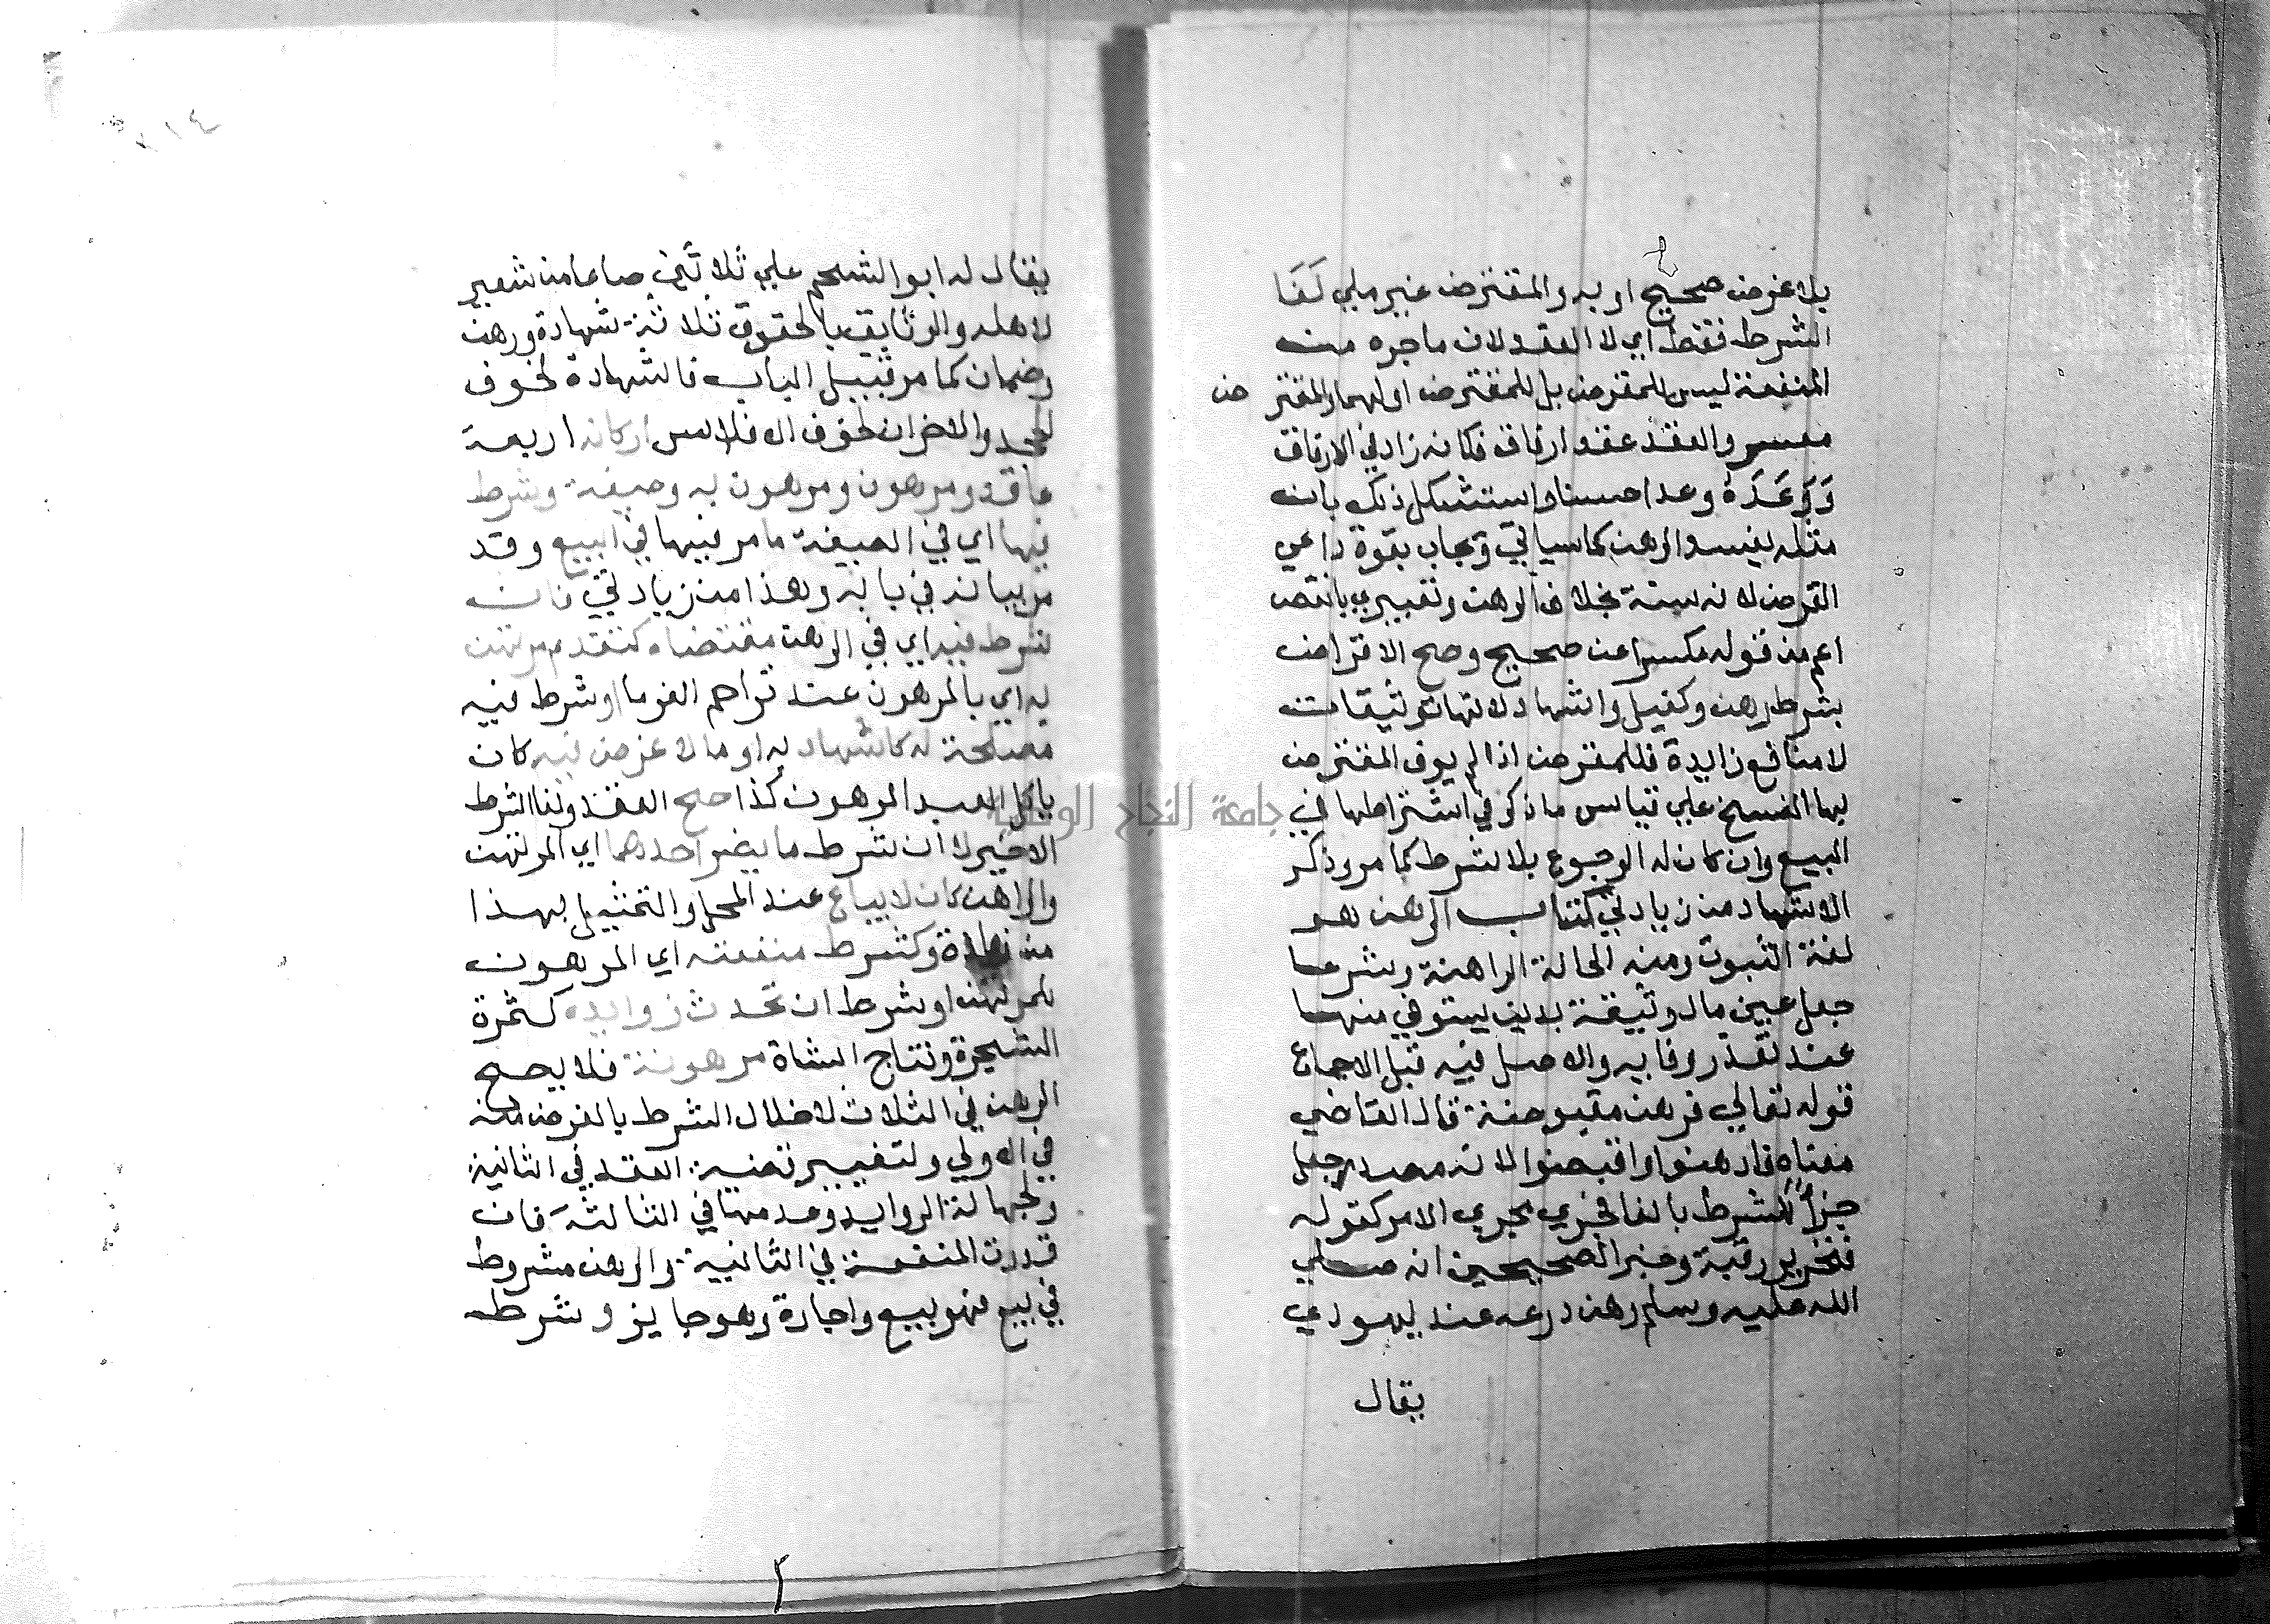 بلا غرض صحيح او به والمقترض غير ملي لَغَا
الشرط فقط اي لا العقد لان ما جره من
المنفعة ليس للمقرض بل للمقترض او لهما والمقترض
معسر والعقد عقد ارفاق فكانه زاد في الارفاق
وَوَعَدَهُ وعدا حسنا واستشكل ذلك بان
مثله يفسد الرهن كما سياتي ويجاب بقوة داعي
القرض لانه سنة بخلاف الرهن وتعبيري بانقص
اعم من قوله مكسرا عن صحيح وصح الاقراض
بشرط رهن وكفيل واشهاد لانها توثيقات
لا منافع زايدة فللمقرض اذا لم يوف المقترض
بها الفسخ علي قياس ما ذكر في اشتراطها في
البيع وان كان له الرجوع بلا شرط كما مر وذكر
الاشهاد من زيادتي كتاب الرهن هو
لغة الثبوت ومنه الحالة الراهنة وشرعا
جعل عين مال وثيقة بدين يستوفي منها
عند تعذر وفايه والاصل فيه قبل الاجماع
قوله تعالي فرهن مقبوضة قال القاضي
معناه فارهنوا واقبضوا لانه مصدر جعل
جزاً للشرط بالفا فجري مجري الامر كقوله
فتحرير رقبة وخبر الصحيحين انه صلي
الله عليه وسلم رهن درعه عند يهودي
يقال
يقال له ابو الشحم علي ثلاثين صاعا من شعير
لاهله والوثايق بالحقوق ثلاثة شهادة ورهن
وضمان كما مر قبيل الباب فالشهادة لخوف
الجحد والاخران لخوف الافلاس اركانه اربعة
عاقد ومرهون ومرهون به وصيغة وشرط
فيها اي في الصيغة ما مر فيها في البيع وقد
مر بيانه في بابه وهذا من زيادتي فان
شرط فيه اي في الرهن مقتضاه كتقدم مرتهن
به اي بالمرهون عند تزاحم الغرما او شرط فيه
مصلحة له كاشهاد به او ما لا غرض فيه كان
ياكل العبد المرهون كذا صح العقد ولغا الشرط
الاخير لا ان شرط ما يضر احدهما اي المرتهن
والراهن كان لا يباع عند المحل والتمثيل بهذا
من زيادة وكشرط منفعته اي المرهون
للمرتهن او شرط ان تحدث زوايده كثمرة
الشجرة ونتاج الشاة مرهونة فلا يصح
الرهن في الثلاث لاخلال الشرط بالغرض منه
في الاولي ولتغيير قضية العقد في الثانية
ولجهالة الزوايد وعدمها في الثالثة فان
قدرت المنفعة في الثانية والرهن مشروط
في بيع فهو بيع واجارة وهو جايز وشرط